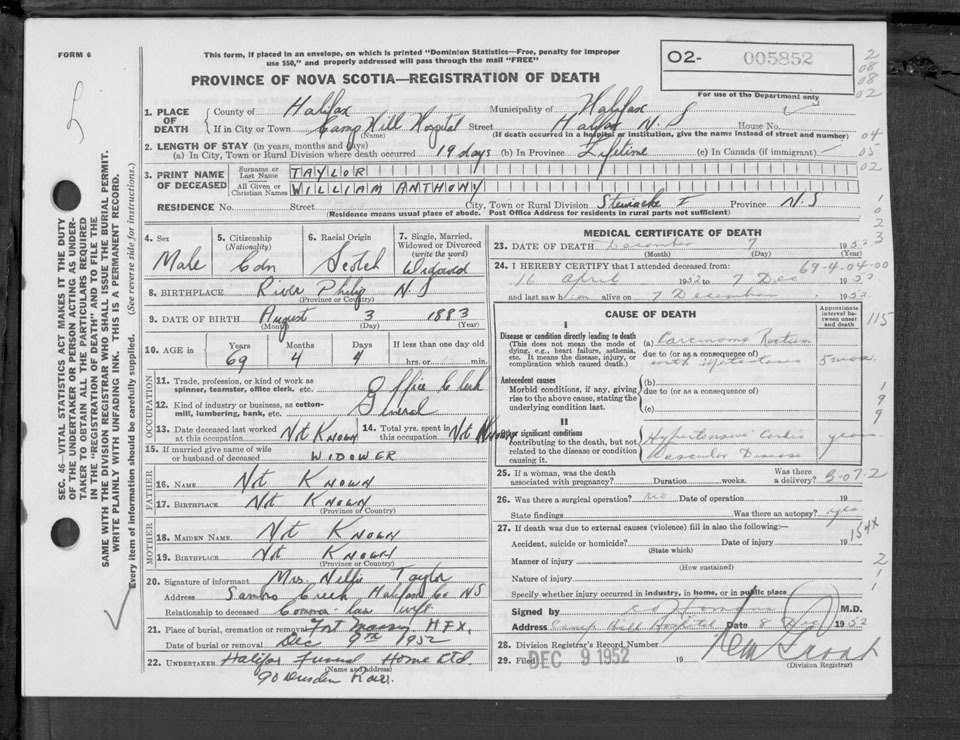 FORM 6
This form, if placed in an envelope, on which is printed "Dominion Statistics—Free, penalty for improper
use $50," and properly addressed will pass through the mail "FREE"
PROVINCE OF NOVA SCOTIA—REGISTRATION OF DEATH
02- 005852
For use of the Department only
2
08
08
02
1. PLACE OF DEATH County of Halifax Municipality of Halifax
If in City or Town Camp Hill Hospital Street Halifax N.S House No.
(Name) (If death occurred in a hospital or institution, give the name instead of street and number)
04
05
02
2. LENGTH OF STAY (in years, months and days)
(a) In City, Town or Rural Division where death occurred 19 days (b) In Province Lifetime (c) In Canada (if immigrant)
3. PRINT NAME OF DECEASED Surname or Last Name TAYLOR
All Given or Christian Names WILLIAM ANTHONY
RESIDENCE No. Street City, Town or Rural Division Stewiacke Province N.S
(Residence means usual place of abode. Post Office Address for residents in rural parts not sufficient)
4. Sex Male
5. Citizenship (Nationality) Cdn
6. Racial Origin Scotch
7. Single, Married, Widowed or Divorced (write the word) Widowed
8. BIRTHPLACE River Philip N.S
(Province or Country)
9. DATE OF BIRTH August 3 1883
(Month) (Day) (Year)
10. AGE in Years 69 Months 4 Days 4 If less than one day old hrs. or min.
OCCUPATION
11. Trade, profession, or kind of work as spinner, teamster, office clerk, etc. Office Clerk
12. Kind of industry or business, as cotton-mill, lumbering, bank, etc. General
13. Date deceased last worked at this occupation Not Known
14. Total yrs. spent in this occupation Not Known
15. If married give name of wife or husband of deceased WIDOWER
FATHER
16. NAME Not Known
17. BIRTHPLACE Not Known
(Province or Country)
MOTHER
18. MAIDEN NAME Not Known
19. BIRTHPLACE Not Known
(Province or Country)
20. Signature of informant Mrs. Nellie Taylor
Address Sambro Creek Halifax Co NS
Relationship to deceased Common law wife
21. Place of burial, cremation or removal Fort Massey HFX.
Date of burial or removal Dec 9th 1952
22. UNDERTAKER Halifax Funeral Home Ltd.
(Name and address)
90 Dresden Row.
MEDICAL CERTIFICATE OF DEATH
23. DATE OF DEATH December 7 1952
(Month) (Day) (Year)
24. I HEREBY CERTIFY that I attended deceased from: 69-4-04-00
16 April 1952 to 7 Dec 1952
and last saw him alive on 7 December 1952
CAUSE OF DEATH
Approximate interval between onset and death
115
I
Disease or condition directly leading to death
(This does not mean the mode of dying, e.g., heart failure, asthenia, etc. It means the disease, injury, or complication which caused death.)
(a) Carcinoma Rectum
due to (or as a consequence of)
5 mos.
Antecedent causes
Morbid conditions, if any, giving rise to the above cause, stating the underlying condition last.
(b)
due to (or as a consequence of)
(c)
1
9
9
II
Other significant conditions
contributing to the death, but not related to the disease or condition causing it.
Hypertensive Cardio Vascular Disease years
25. If a woman, was the death associated with pregnancy? Duration weeks. Was there a delivery? B-07-2
26. Was there a surgical operation? no Date of operation 19
State findings Was there an autopsy? yes
27. If death was due to external causes (violence) fill in also the following:—
Accident, suicide or homicide? Date of injury 19 154X
(State which)
Manner of injury
(How sustained)
2
Nature of injury
1
Specify whether injury occurred in industry, in home, or in public place
1
Signed by M.D.
Address Camp Hill Hospital Date 8 Dec 1952
28. Division Registrar's Record Number
29. Filed DEC 9 1952 19
(Division Registrar)
SEC. 46—VITAL STATISTICS ACT MAKES IT THE DUTY
OF THE UNDERTAKER OR PERSON ACTING AS UNDER-
TAKER TO OBTAIN ALL THE PARTICULARS REQUIRED
IN THE "REGISTRATION OF DEATH" AND TO FILE THE
SAME WITH THE DIVISION REGISTRAR WHO SHALL ISSUE THE BURIAL PERMIT.
WRITE PLAINLY WITH UNFADING INK. THIS IS A PERMANENT RECORD.
Every item of information should be carefully supplied. (See reverse side for instructions.)